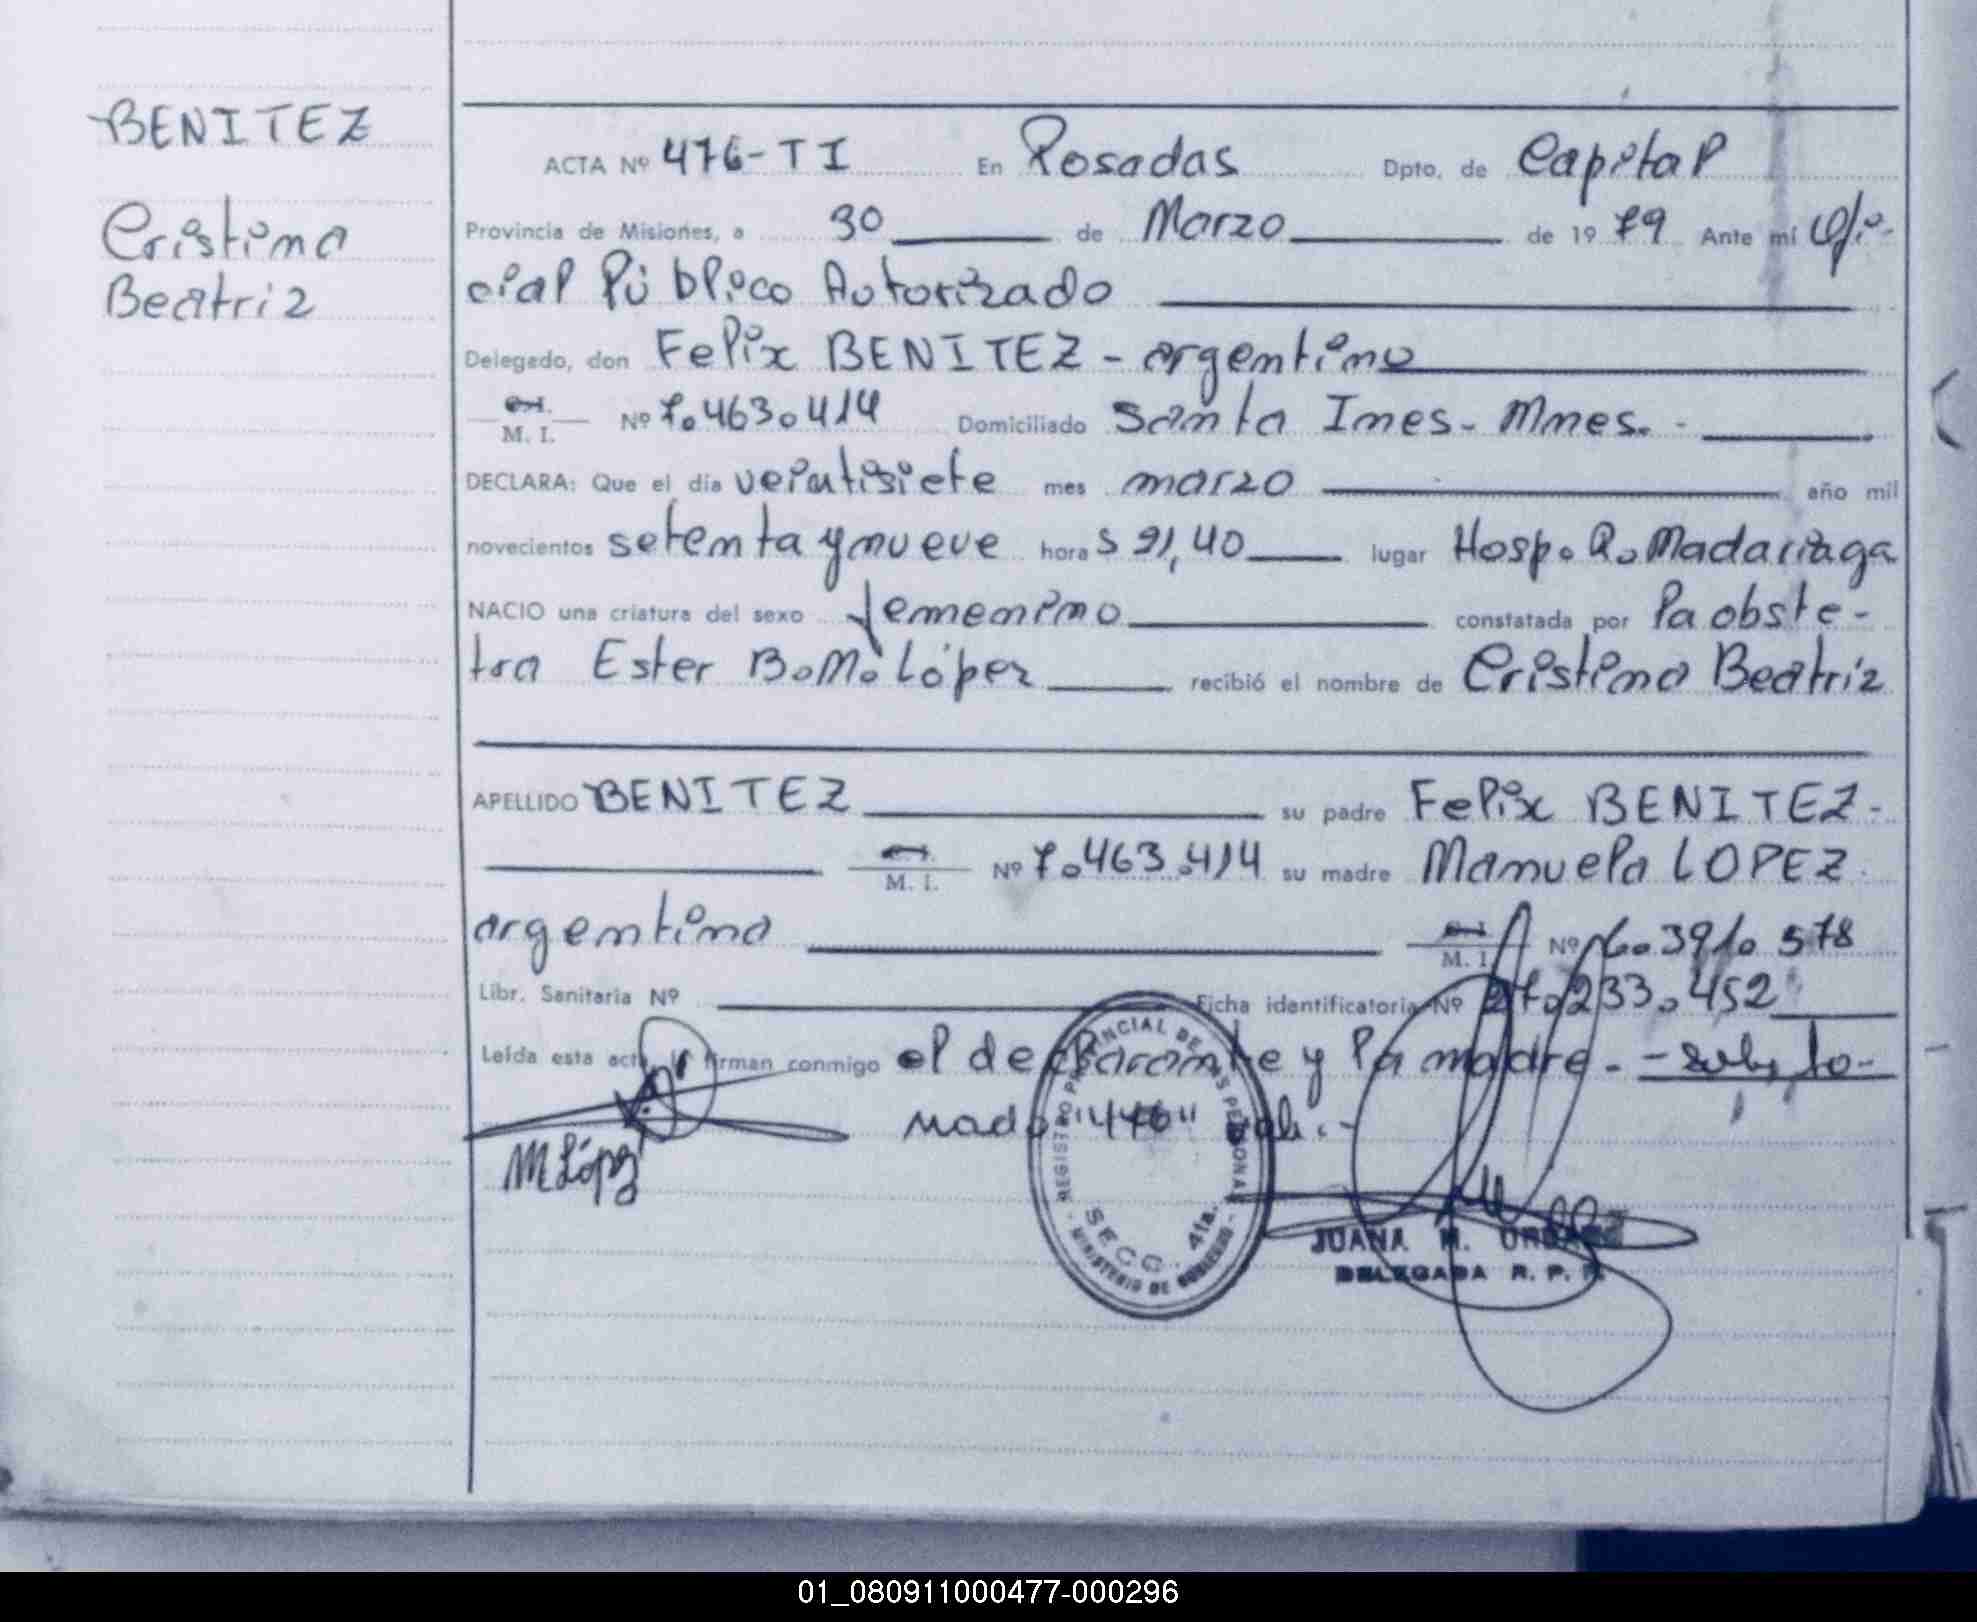 BENITEZ
Cristina
Beatriz
ACTA Nº 476-TI En Posadas Dpto. de Capital
Provincia de Misiones, a 30 de Marzo de 1979 Ante mí Ofi-
cial Público Autorizado
Delegado, don Felix BENITEZ - argentino
C.I.
M. I. Nº 7.463.414 Domiciliado Santa Ines - Mnes. -
DECLARA: Que el día veintisiete mes marzo año mil
novecientos setenta y nueve hora s 21,40 lugar Hosp. R. Madariaga
NACIO una criatura del sexo femenino constatada por la obste-
tra Ester B. M. López recibió el nombre de Cristina Beatriz
APELLIDO BENITEZ su padre Felix BENITEZ -
M. I. Nº 7.463.414 su madre Manuela LOPEZ
argentina M. I. Nº 6.391.578
Libr. Sanitaria Nº Ficha identificatoria Nº 27.233.452
Leída esta acta firman conmigo el declarante y la madre. - sob, to-
nado "476" vale. -
M López
REGISTRO PROVINCIAL DE LAS PERSONAS
SECC. 4ta.
MINISTERIO DE GOBIERNO
JUANA M.
DELEGADA R. P. P.
01_080911000477-000296